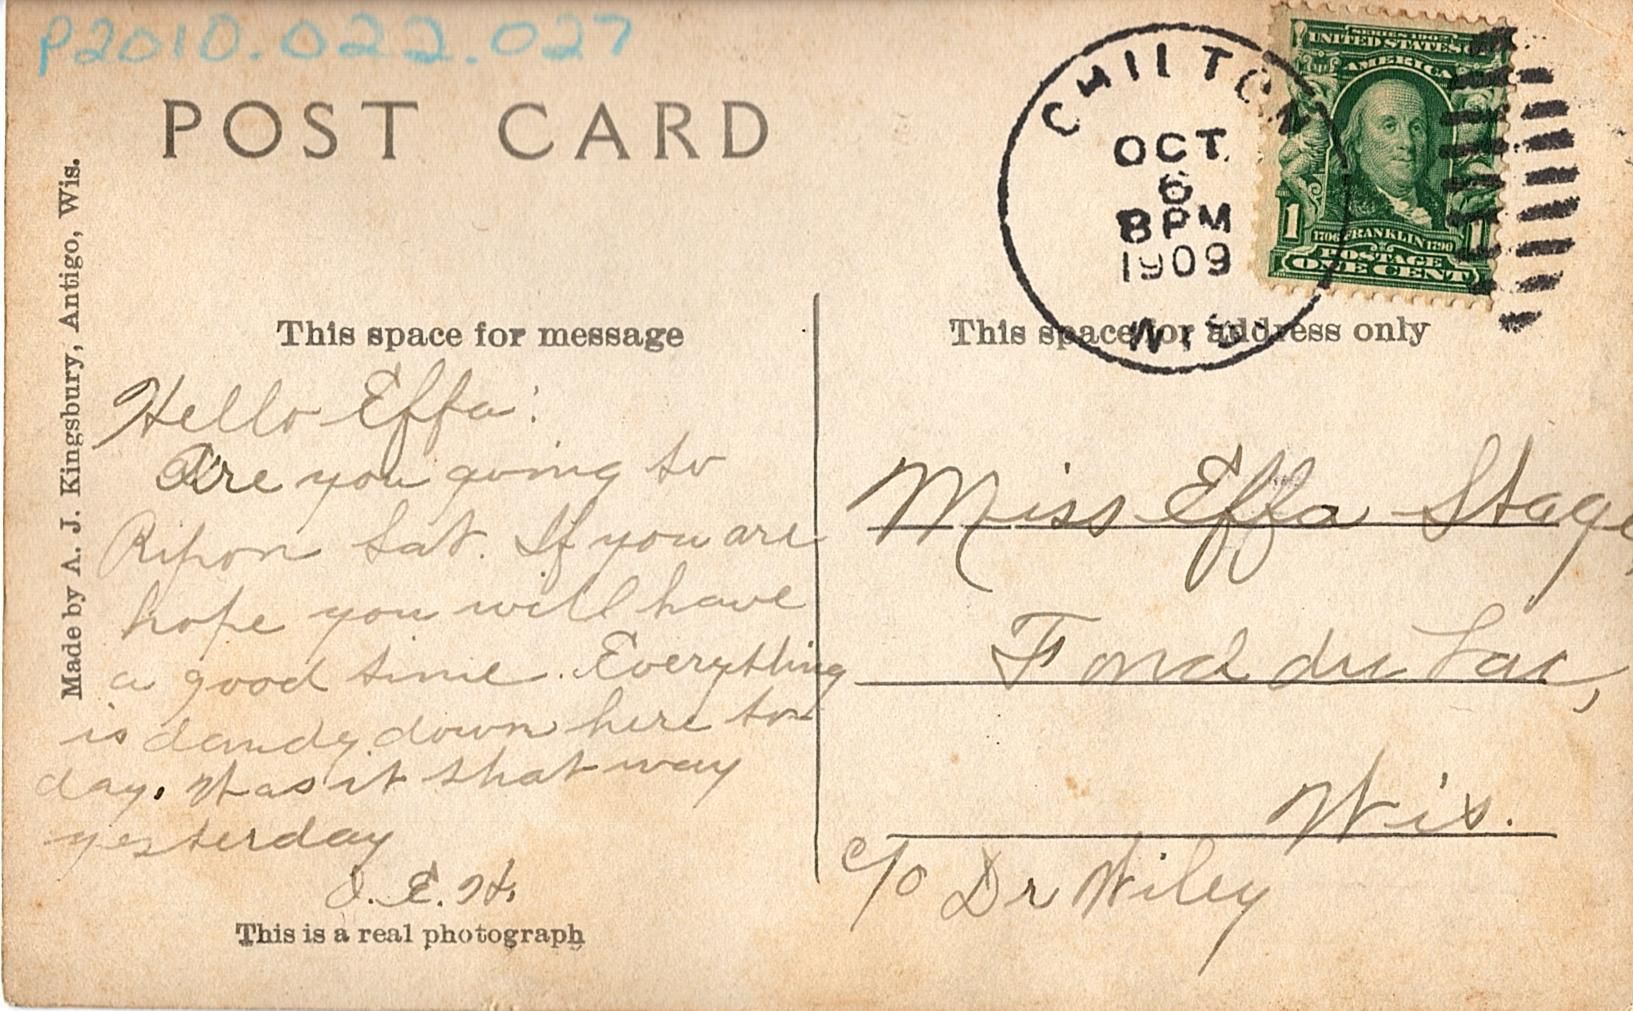 P2010.022.027
POST CARD
Made by A. J. Kingsbury, Antigo, Wis.
CHILTON
OCT
6
8 PM
1909
WIS
SERIES 1902
UNITED STATES OF
AMERICA
1
1706 FRANKLIN 1790
1
POSTAGE
ONE CENT
This space for message
This space for address only
Hello Effa:
Are you going to
Ripon Sat. If you are
hope you will have
a good time. Everything
is dandy down here to-
day. Was it that way
yesterday
E. H.
This is a real photograph
Miss Effa Stage,
Fond du Lac,
Wis.
c/o Dr Wiley